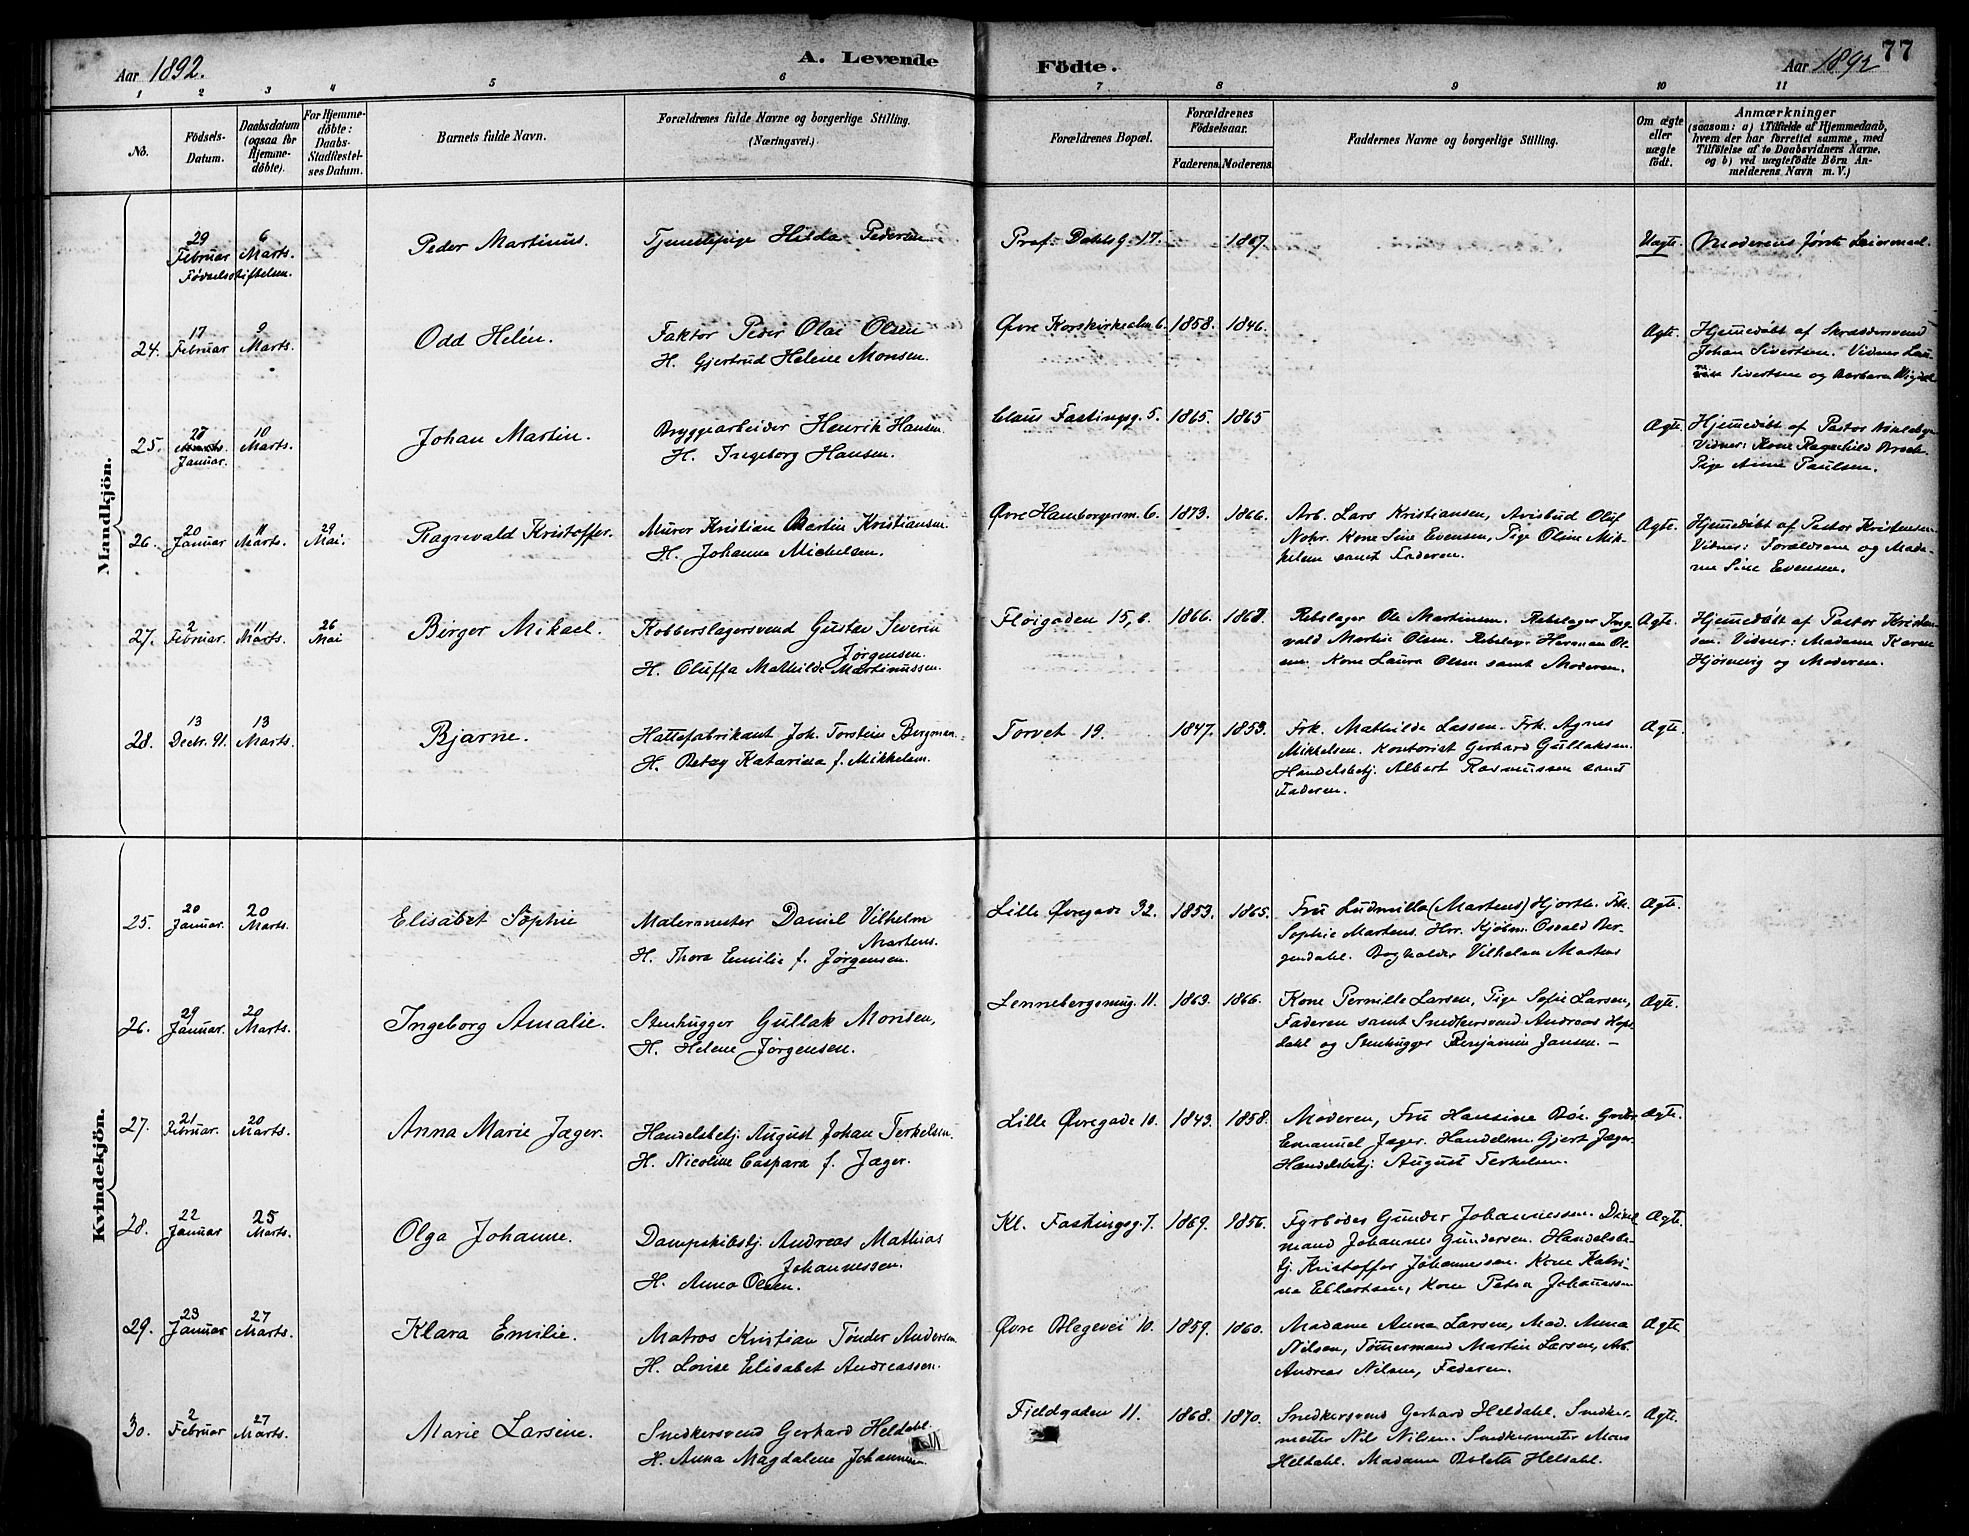 Aar 1892.
A. Levende
Födte.
Aar 1892
77
1 2 3 4 5 6 7 8 9 10 11
No.
Födsels-
Datum.
Daabsdatum
(ogsaa for
Hjemme-
döbte).
For Hjemme-
döbte:
Daabs-
Stadfæstel-
ses Datum.
Barnets fulde Navn.
Forældrenes fulde Navne og borgerlige Stilling.
(Næringsvei.)
Forældrenes Bopæl.
Forældrenes
Födselsaar.
Faderens. Moderens.
Faddernes Navne og borgerlige Stilling.
Om ægte
eller
uægte
födt.
Anmærkninger
(saasom: a) i Tilfælde af Hjemmedaab,
hvem der har forrettet samme, med
Tilföielse af to Daabsvidners Navne,
og b) ved uægtefödte Börn An-
melderens Navn m. V.)
Mandkjön.
29 Februar
Födselsstiftelsen.
6 Marts.
Peder Martinus.
Tjenestepige Hilda Pedersen
Prof. Dahlsg. 17.
1867.
Uægte.
Moderens første Leiermaal
24. 17 Februar 9 Marts.
Odd Helén.
Faktor Peder Olai Olsen
H. Gjertrud Helene Monsen.
Øvre Korskirkealm. 6. 1858. 1846.
Ægte.
Hjemmedøbt af Skræddersvend
Johan Sivertsen. Vidner
Sivertsen og Barbara
25. Januar. 10 Marts.
Johan Martin.
Bryggearbeider Henrik Hansen
H. Ingeborg Hansen.
Claus Fastingsg. 5. 1865. 1865
Ægte.
Hjemmedøbt af Pastor
Vidner: Kone Ragnhild
Pige Anne Paulsen.
26. 20 Januar 11 Marts. 29 Mai.
Ragnvald Kristoffer.
Murer Kristian Martin Kristiansen.
H. Johanne Mickelsen.
Øvre Hamborgersm. 6. 1873. 1866.
Arb. Lars Kristiansen, Avisbud Oluf
Nohr. Kone Sine Evensen, Pige Oline Mik-
kelsen samt Faderen.
Ægte.
Hjemmedøbt af Pastor Kristensen
Vidner: Forældrene og Mada-
me Sine Evensen.
27. 2 Februar. 11 Marts. 26 Mai
Birger Mikael.
Kobberslagersvend Gustav Severin
Jørgensen.
H. Oluffa Mathilde Martinussen.
Fløigaden 15,6. 1866. 1867.
Rebslager Ole Martinsen. Rebslager Ing-
vald Martin Olsen. Rebslagr Herman Ol-
sen. Kone Laura Olsen samt Moderen.
Ægte.
Hjemmedøbt af Pastor Kristen-
sen. Vidner: Madame Karen
Hjørnevig og Moderen.
28. 13 Decbr. 91. 13 Marts.
Bjarne.
Hattefabrikant Joh. Torstein Bergman.
H. Betzy Katarina f. Mikkelsen.
Torvet 19. 1847. 1853.
Frk. Mathilde Lassen. Frk. Agnes
Mikkelsen. Kontorist Gerhard Gullaksen.
Handelsbetj. Albert Rasmussen samt
Faderen.
Ægte.
Kvindekjön.
25. 20 Januar. 20 Marts.
Elisabet Sophie
Malermester Daniel Vilhelm
Martens.
H. Thora Emilie f. Jørgensen.
Lille Øvregade 32. 1853. 1865.
Fru Ludmilla (Martens) Hjorth. Frk.
Sophie Martens. Hrr. Kjøbm. Osvald Ber-
gendahl. Bogholder Vilhelm Martens
Ægte.
26. 29 Januar. 20 Marts.
Ingeborg Amalie.
Stenhugger Gullak Monsen,
H. Helene Jørgensen.
11. 1863. 1866.
Kone Pernille Larsen, Pige Sofie Larsen,
Faderen samt Snedkersvend Andreas Hop-
dahl og Stenhugger Benjamin Jansen. –
Ægte.
27. 21 Februar. 20 Marts.
Anna Marie Jæger.
Handelsbetj. August Johan Terkelsen.
H. Nicoline Caspara f. Jæger.
Lille Øvregade 10. 1843. 1858.
Moderen, Fru Hansine Bøe.
Emanuel Jæger. Handelsm. Gjert Jæger.
Handelsbetj. August Terkelsen.
Ægte.
28. 22 Januar 25 Marts.
Olga Johanne.
Dampskibsbj. Andreas Mathias
Johannessen.
H. Anna Olsen.
Kl. Fastingsg. 7. 1869. 1856.
Fyrbøder Gunder Johannessen.
mand Johannes Gundersen. Handelsbe-
tj. Kristoffer Johannessen. Kone Katri-
ne Ellertsen, Kone Petra Johannessen
Ægte.
29. 23 Januar 27 Marts.
Klara Emilie.
Matros Kristian Tønder Andersen
H. Lovise Elisabet Andreassen.
Øvre Blegevei 10. 1859. 1860.
Madame Anna Larsen, Mad. Anna
Nilsen, Tømmermand Martin Larsen, Arb.
Andreas Nilsen, Faderen.
Ægte
30. 2 Februar 27 Marts.
Marie Larsine.
Snedkersvend Gerhard Heldahl
H. Anna Magdalene
Fjeldgaden 11. 1868. 1870.
Snedkersvend Gerhard Heldahl. Snedker-
mester Nils Nilsen. Snedkermester Mons
Heldahl. Madame Bolette Heldahl.
Ægte.